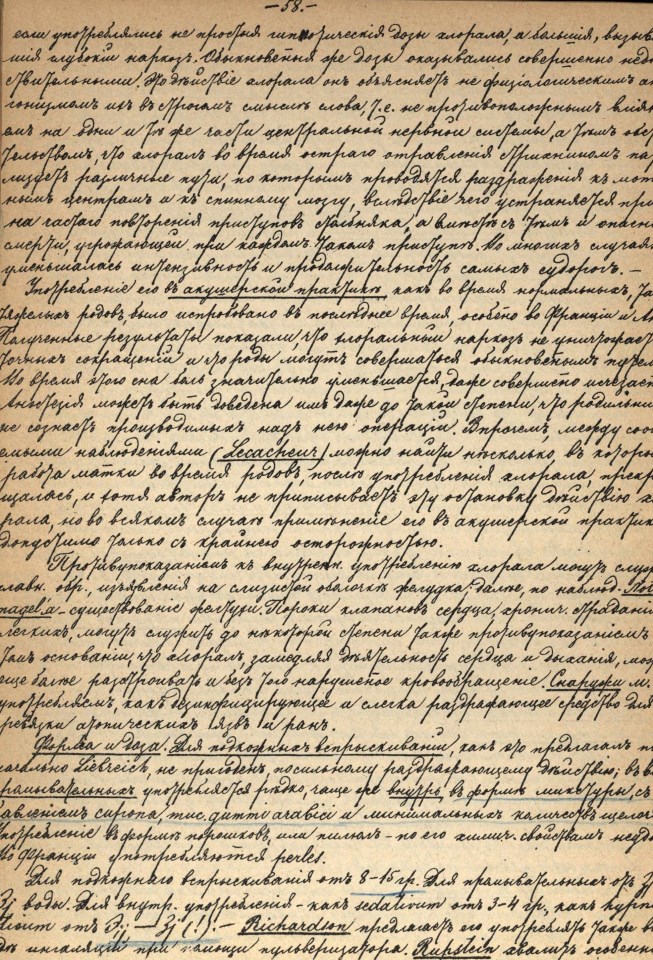 — 58. —
если употреблялись не простыя гипнотическія дозы хлорала, а большія, вызыв
шія глубокій наркоз. Обыкновенныя же дозы оказывались совершенно недѣ
ствительными. Но дѣйствіе хлорала онъ объясняетъ не физіологическимъ а
гонизмомъ ихъ въ строгомъ смыслѣ слова, т.е. не противоположнымъ влія
емъ на одни и тѣ же части центральной нервной системы, а тѣмъ обс
тельствомъ, что хлоралъ во время остраго отравленія стрихниномъ па
лизуетъ различные пути, по которымъ проводятся раздраженія къ мот
нымъ центрамъ и къ спинному мозгу, вслѣдствіе чего устраняется при
на частаго повторенія приступовъ столбняка, а вмѣстѣ съ тѣмъ и опасно
смерти, угрожающей при каждомъ такомъ приступѣ. Во многихъ случаях
уменьшалась интензивность и продолжительность самыхъ судорогъ. —
Употребленіе его въ акушерской практикѣ, какъ во время нормальныхъ, та
тяжелыхъ родовъ было испробовано въ послѣднее время, особено во Франціи и Ан
Полученные результаты показали что хлоральный наркозъ не уничтожает
точныхъ сокращеній и что роды могутъ совершаться обыкновеннымъ путем
Во время этого сна боль значительно уменьшается, даже совершено исчезает
Анестезія можетъ быть доведена имъ даже до такой степени, что родильни
не сознаетъ производимыхъ надъ нею операцій. Впрочемъ, между соо
емыми наблюденіями (Lecacheur) можно найти нѣсколько, въ которы
работа матки во время родовъ, послѣ употребленія хлорала, прекр
щалась, и хотя авторъ не приписываетъ эту остановку дѣйствію х
рала, но во всякомъ случаѣ примѣненіе его въ акушерской практик
допустимо только съ крайнею осторожностью.
Противупоказаніемъ къ внутренн. употребленію хлорала могутъ служ
главн. обр., изъявленія на слизистой оболочкѣ желудка; далѣе, по наблюд. Not
nagel'я — существованіе желтухи. Пороки клапановъ сердца, хронич. страданія
легкихъ, могутъ служить до нѣкоторой степени также противупоказаніемъ
томъ основаніи, что хлоралъ, замедляя дѣятельность сердца и дыханія, мож
еще болѣе разстроивать и безъ того нарушеное кровообращеніе. Снаружи м.
употребляемъ, какъ дезинфицирующее и слегка раздражающее средство для
ревязки атоническихъ язвъ и ранъ.
Форма и доза. Для подкожныхъ вспрыскиваній, какъ это предлагалъ п
начально Liebreich, не пригоденъ, посильному раздражающему дѣйствію; въ в
промывательныхъ употребляется рѣдко, чаще же внутрь, въ формѣ микстуры, съ
бавленіемъ сиропа, muc. gummi arabici и минимальныхъ количествъ щелоч
Употребленіе въ формѣ порошковъ, или пилюль — по его химич. свойствамъ неудо
Во Франціи употребляются perles.
Для подкожнаго вспрыскиванія отъ 8-15 гр. Для промывательныхъ отъ
воды. Для внутр. употребленія — какъ sedativum отъ 3-4 гр., какъ hypno
ticum отъ (!). — Richardson предлагаетъ его употреблять также в
дѣ ингаляцій при помощи пульверизатора. Rupstein хвалитъ особенн